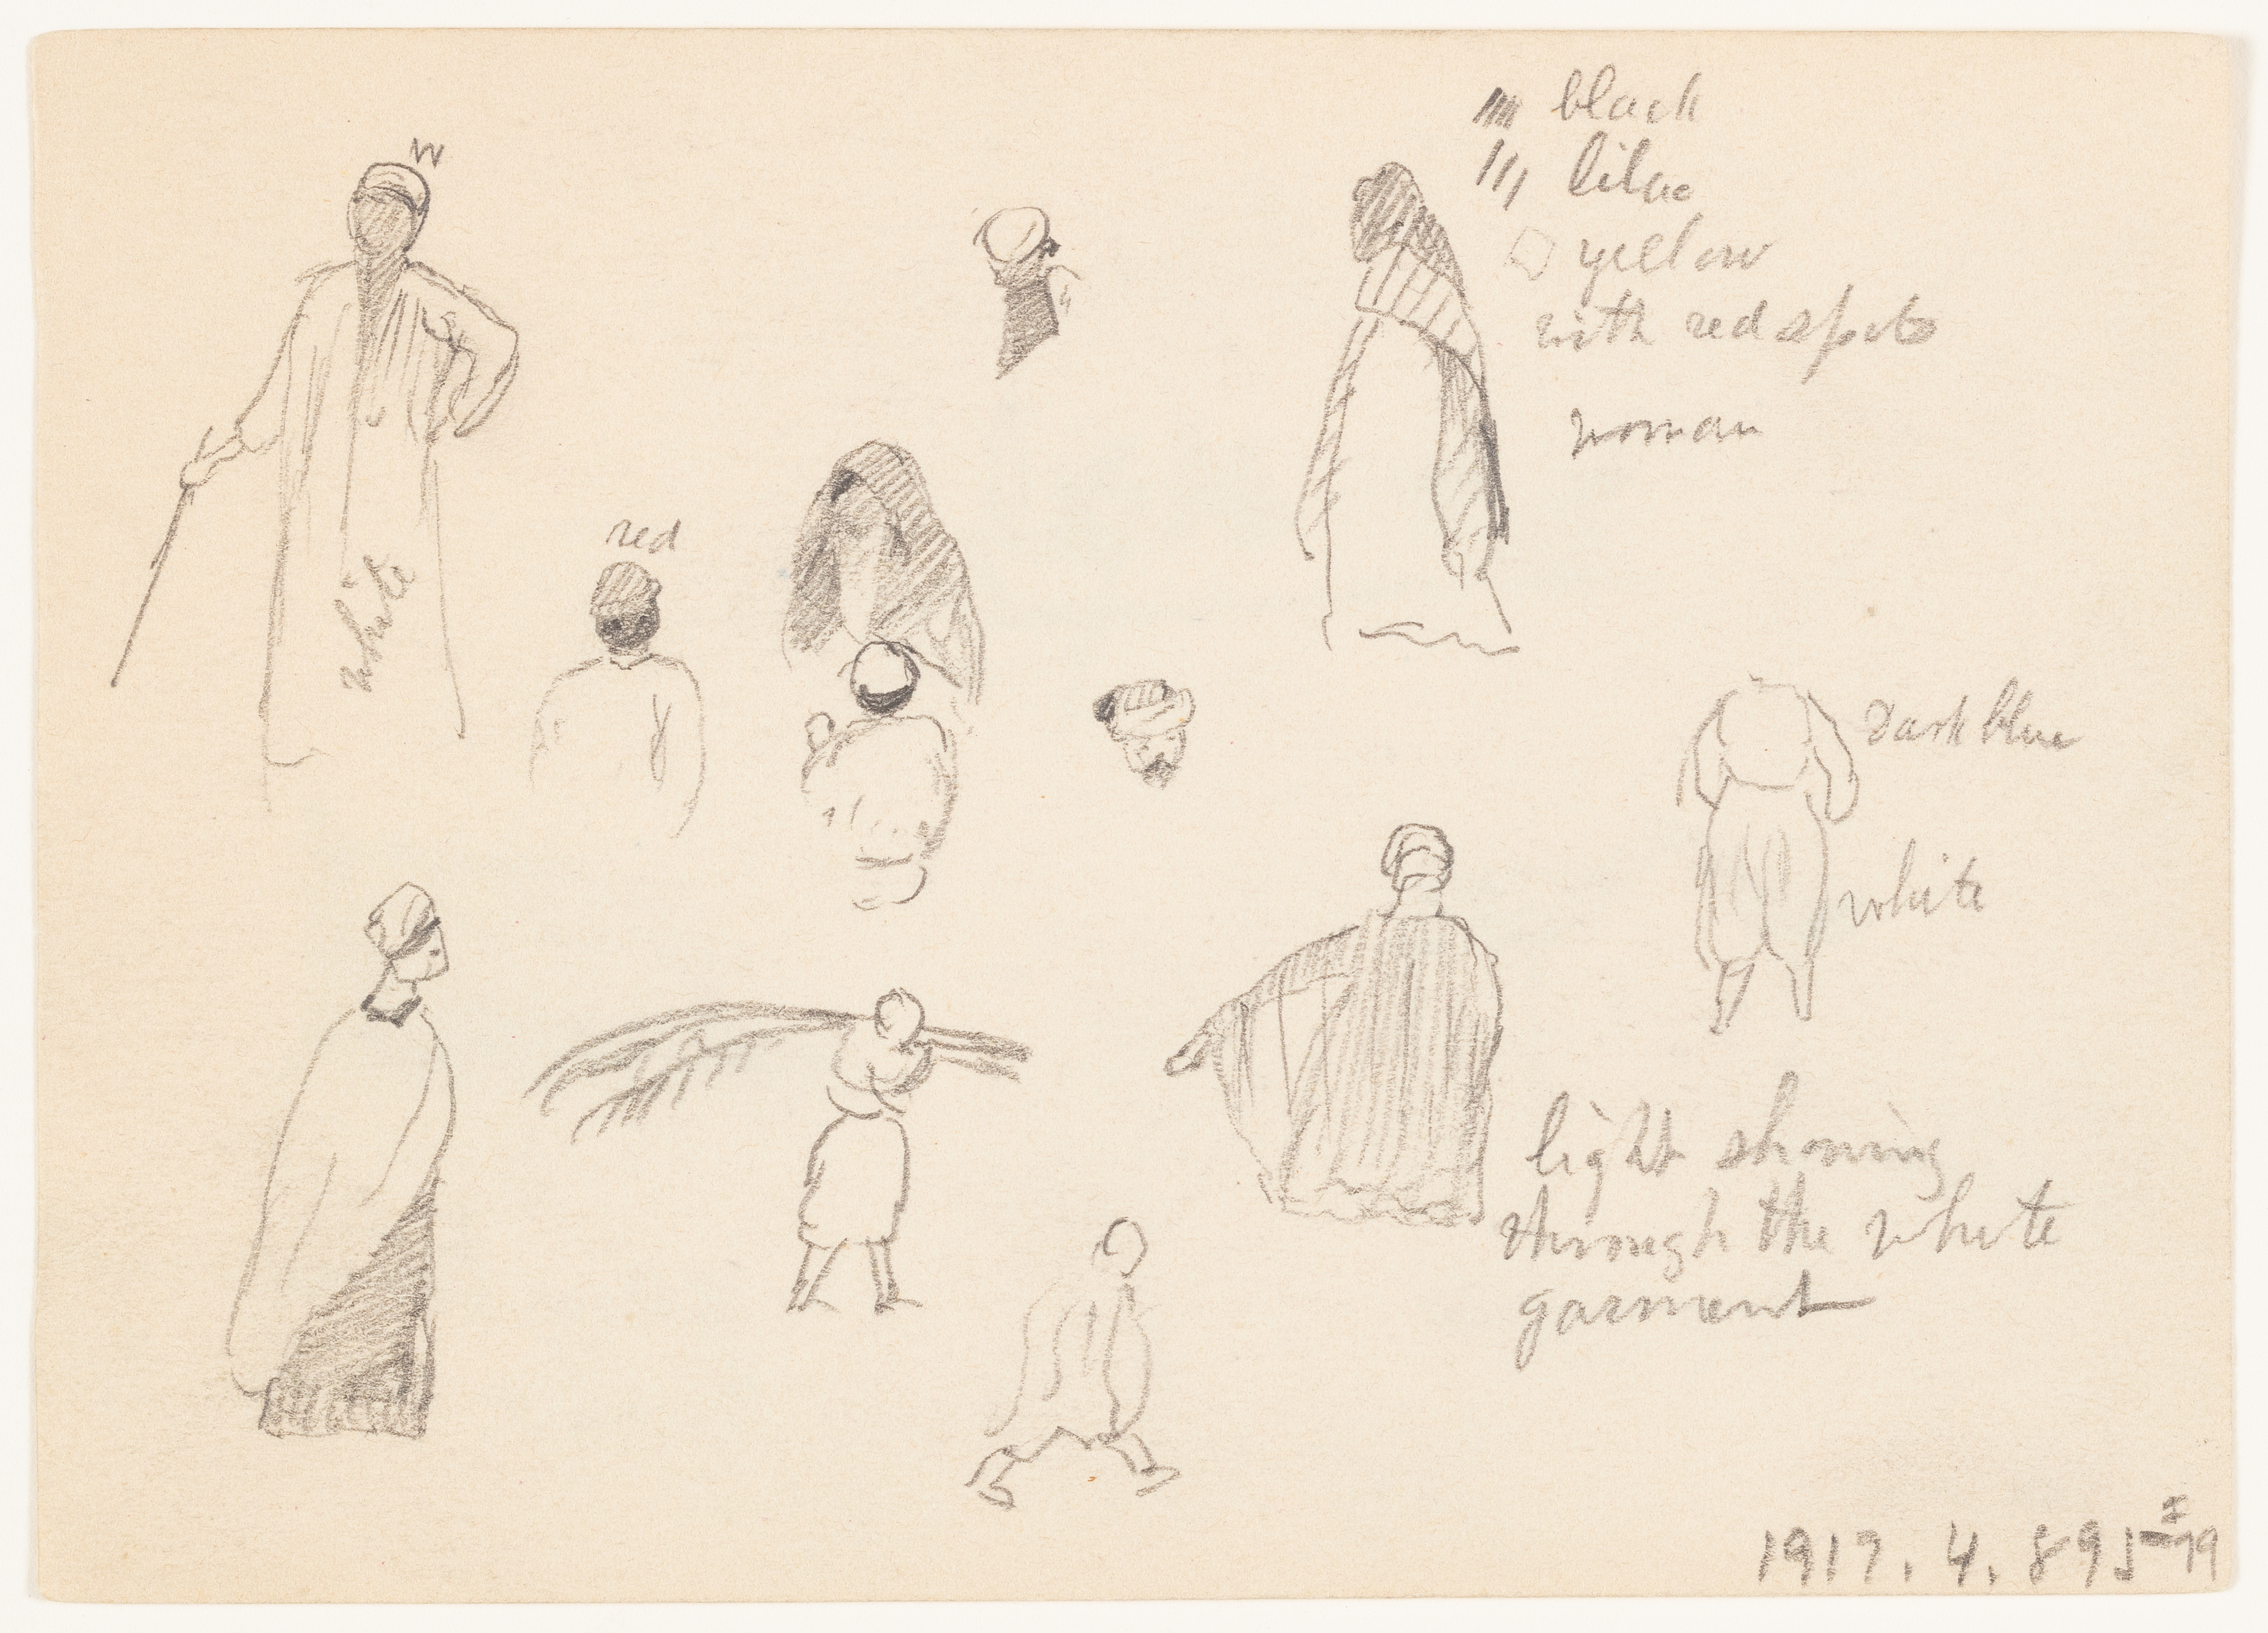 W
white
red
black
lilac
yellow
with red spots
woman
dark blue
white
light showing
through the white
garment
1917.4.895